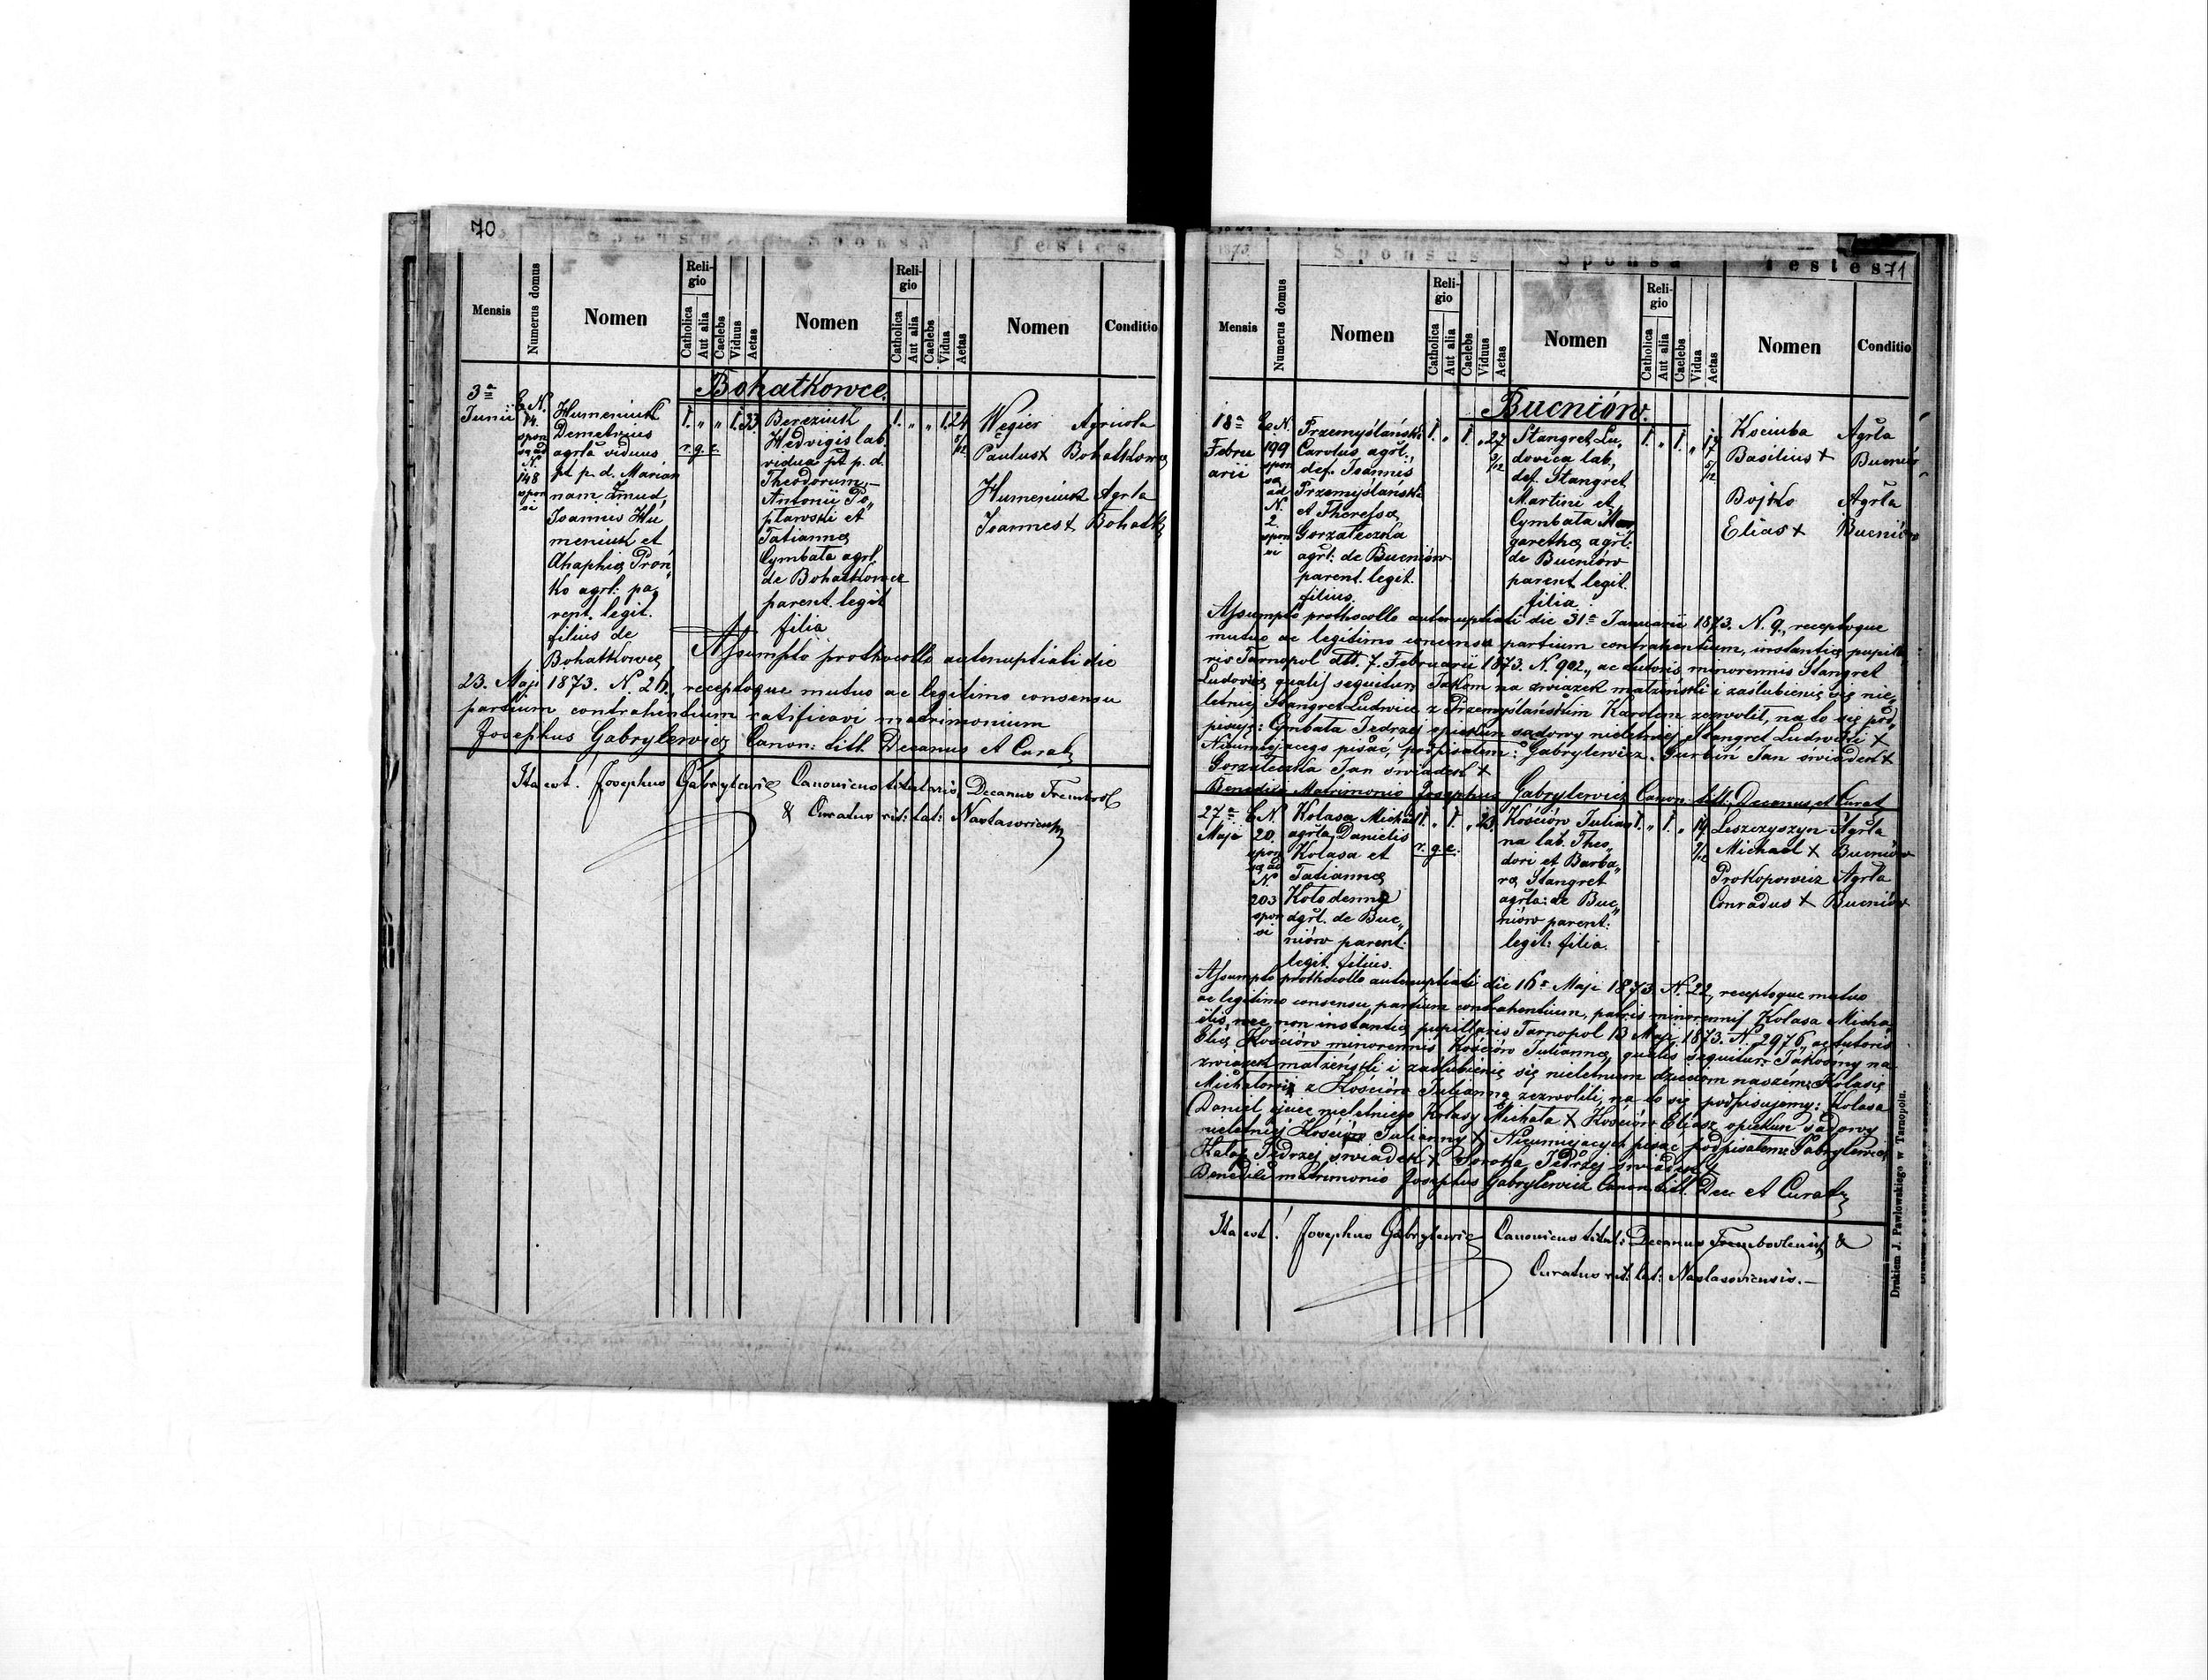 70
Sponsus Sponsa Testes
Mensis
Numerus domus
Nomen
Religio
Catholica
Aut alia
Caelebs
Viduus
Aetas
Nomen
Religio
Catholica
Aut alia
Caelebs
Vidua
Aetas
Nomen
Conditio
Bohatkowce.
3a
Junii
E N.
14.
spon
sa ad
N.
148
spon
si
Humeniuk
Demetrius
agrla viduus
pt p. d. Marian
nam Żmud,
Joannis Hu
meniuk et
Ahaphiæ Proń
ko agrl: pa„
rent. legit.
filius de
Bohatkowce
1. „ „ 1. 33
r. g. c.
Bereziuk
Hedvigis lab.
vidua pt p. d.
Theodorum,–
Antonii Po„
pławski et
Tatiannæ
Cymbała agrl.
de Bohatkowce
parent. legit
filia
1. „ „ 1. 24
5/12
Węgier Agricola
Paulus x Bohatkowce
Humeniuk Agrla
Joannes x Bohatk
Assumpto prothocollo antenuptiali die
23. Maji 1873. N. 26., receptoque mutuo ac legitimo consensu
partium contrahentium ratificavi matrimonium
Josephus Gabrylewicz Canon: titl. Decanus et Curat
Ita est. Josephus Gabrylewicz Canonicus titularis, Decanus Trembowl
& Curatus rit: lat: Nastasoviensis
1873.
Sponsus Sponsa Testes
71
Mensis
Numerus domus
Nomen
Religio
Catholica
Aut alia
Caelebs
Viduus
Aetas
Nomen
Religio
Catholica
Aut alia
Caelebs
Vidua
Aetas
Nomen
Conditio
Bucniów.
18a
Febru
arii
E N.
199
spon
sa
ad
N.
2.
spon
si
Przemyślański
Carolus, agrl.,
def. Joannis
Przemyślański
et Theresæ
Gorzałeczka
agrl: de Bucniów
parent. legit.
filius.
1. „ 1. „ 27
3/12
Stangret Lu„
dovica lab.,
def. Stangret
Martini et
Cymbała Mar
garethæ agrl.
de Bucniów
parent legit.
filia.
1. „ 1. „ 17
5/12
Kociuba Agrla
Basilius x Bucniów
Bojko Agrla
Elias x Bucniów
Assumpto prothocollo antenuptiali die 31a Januarii 1873. N. 9., receptoque
mutuo ac legitimo consensu partium contrahentium, instantiæ pupilla
ris Tarnopol dtt. 7. Februarii 1873. N. 902., ac tutoris minorennis Stangret
Ludovicæ, qualis sequitur: Jakom na związek małżeński i zaślubienie się nie„
letniej Stangret Ludwice z Przemyślańskim Karolem zezwolił, na to się pod„
pisuję: Cymbała Jędrzej opiekun sądowy nieletniej Stangret Ludwiki x
Nieumiejącego pisać, podpisałem: Gabrylewicz. Gurbin Jan świadek x
Gorzałeczka Jan świadek x
Benedixi Matrimonio Josephus Gabrylewicz Canon. titl: Decanus et Curat
27a
Maji
E N
20
spon
sa ad
N.
203
spon
si
Kolasa Michael
agrla, Danielis
Kolasa et
Tatiannæ
Kołodenna
agrl. de Buc„
niów parent.
legit. filius.
1. „ 1. „ 23
r. g. c.
Kościów Julian
na lab. Theo„
dori et Barba„
ræ Stangret
agrla: de Buc„
niów parent:
legit: filia.
1. „ 1. „ 19
9/12
Leszczyszyn Agrla
Michael x Bucniów
Prokopowicz Agrla
Conradus x Bucniów
Assumpto prothocollo antenuptiali die 16a Maji 1873. N. 22., receptoque mutuo
ac legitimo consensu partium contrahentium, patris minorennis Kolasa Micha„
elis, nec non instantiæ pupillaris Tarnopol 13 Maji 1873. N. 2976., ac tutoris
Eliæ Kościów minorennis Kościów Juliannæ, qualis sequitur: Jakośmy na
związek małżeński i zaślubienie się nieletnim dzieciom naszém: Kolasie
Michałowi z Kościów Julianną zezwolili, na to się podpisujemy: Kolasa
Daniel, ojciec nieletniego Kolasy Michała x Kościów Eliasz opiekun sądowy
nieletniej Kościów Julianny x Nieumiejących pisać podpisałem: Gabrylewicz
Jędrzej świadek x Soroka Jędrzej świadek x
Benedixi matrimonio Josephus Gabrylewicz Canon. titl. Dec et Curat
Ita est! Josephus Gabrylewicz Canonicus titul: Decanus Trembovlensis &
Curatus rit: lat: Nastasoviensis.–
Drukiem J. Pawłowskiego w Tarnopolu.